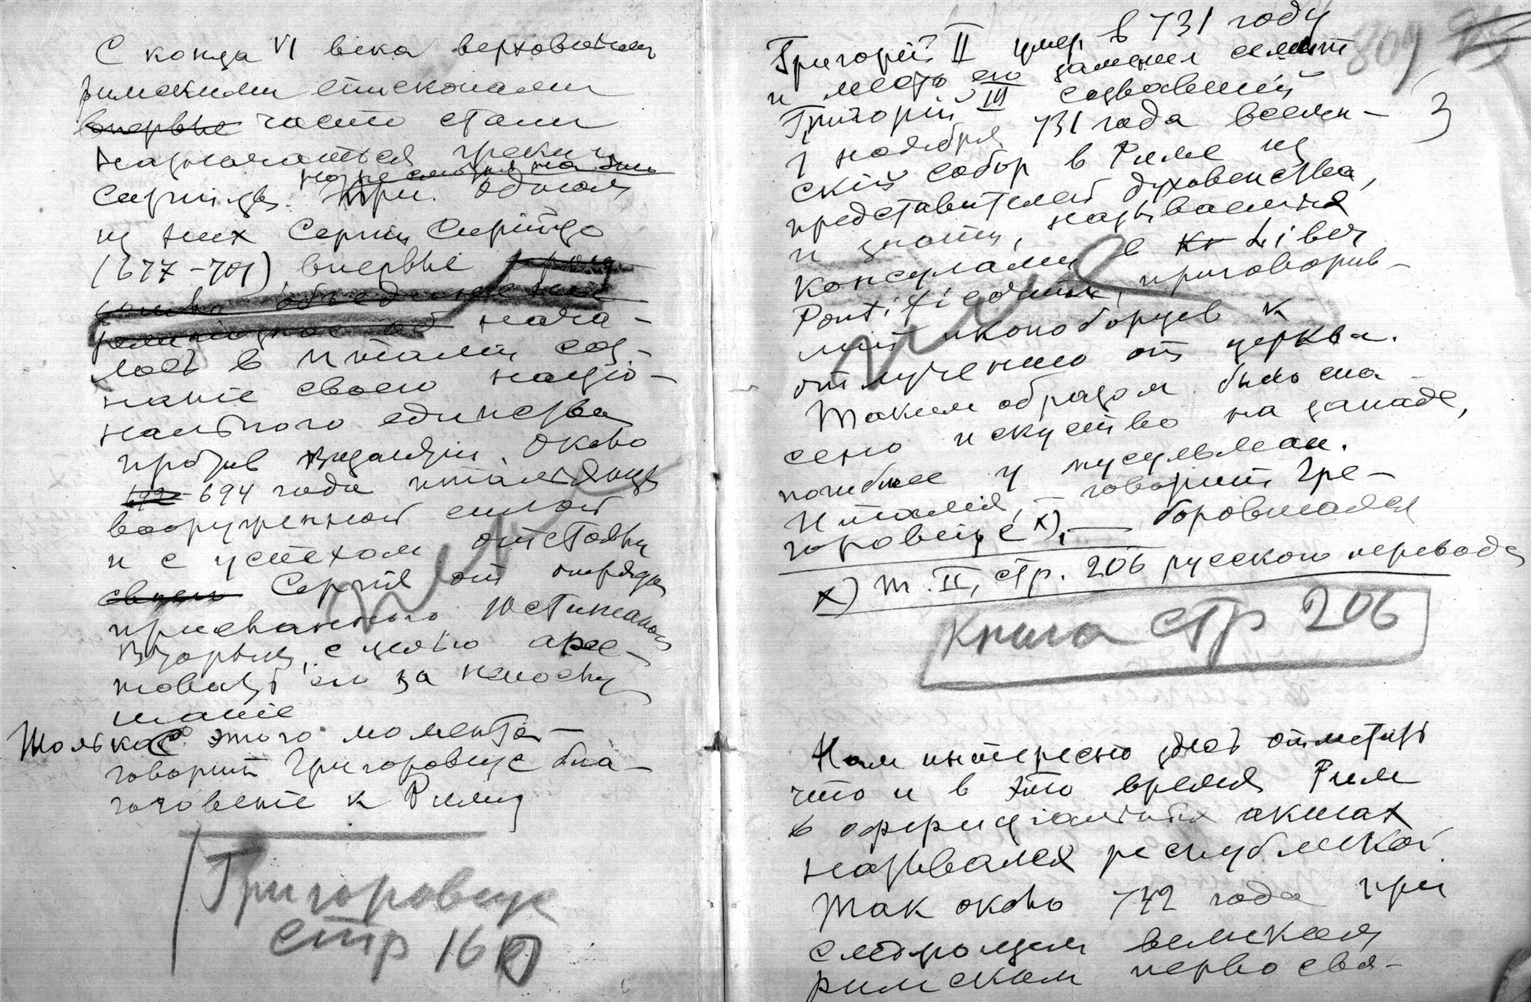 С конца VI века верховными
римскими епископами
впервые часто стали
назначаться греки и
сирийцы. При одном
из них Сергии Сирійце
(677-701) впервые
нача-
лось в Италіи соз-
наніе своего націо-
нальнаго единства
против Византіи. Около
692-694 года итальянцы
вооруженной силой
и с успехом отстояли
Сергія от отряда
присланнаго Юстиніаном
Вторым, с целью арес-
товать его за непослу
шаніе
Только с этого момента-
говорит Григоровіус бла-
гоговеніе к Риму
Григоровиус
стр 160
807
3
Григорій II умер в 731 году
и место его заменил
Григорій III созвавшій
1 ноября 731 года вселен-
скій собор в Риме из
представителей духовенства,
и знати, называемыя
консулами в Кн Liber
Pontificalis, приговорив-
шій иконоборцев к
отлучению от церкви.
Таким образом было спа-
сено искуство на западе,
погибшее у мусульман.
Италія, — говорит Гре-
горовіус х), — боровшаяся
х) т. II, стр. 206 русского перевода
Книга стр 206
Нам интересно здесь отметить
что и в это время Рим
в официальных актах
назывался республикой.
Так около 742 года при
следующем великом
римском первосвя-